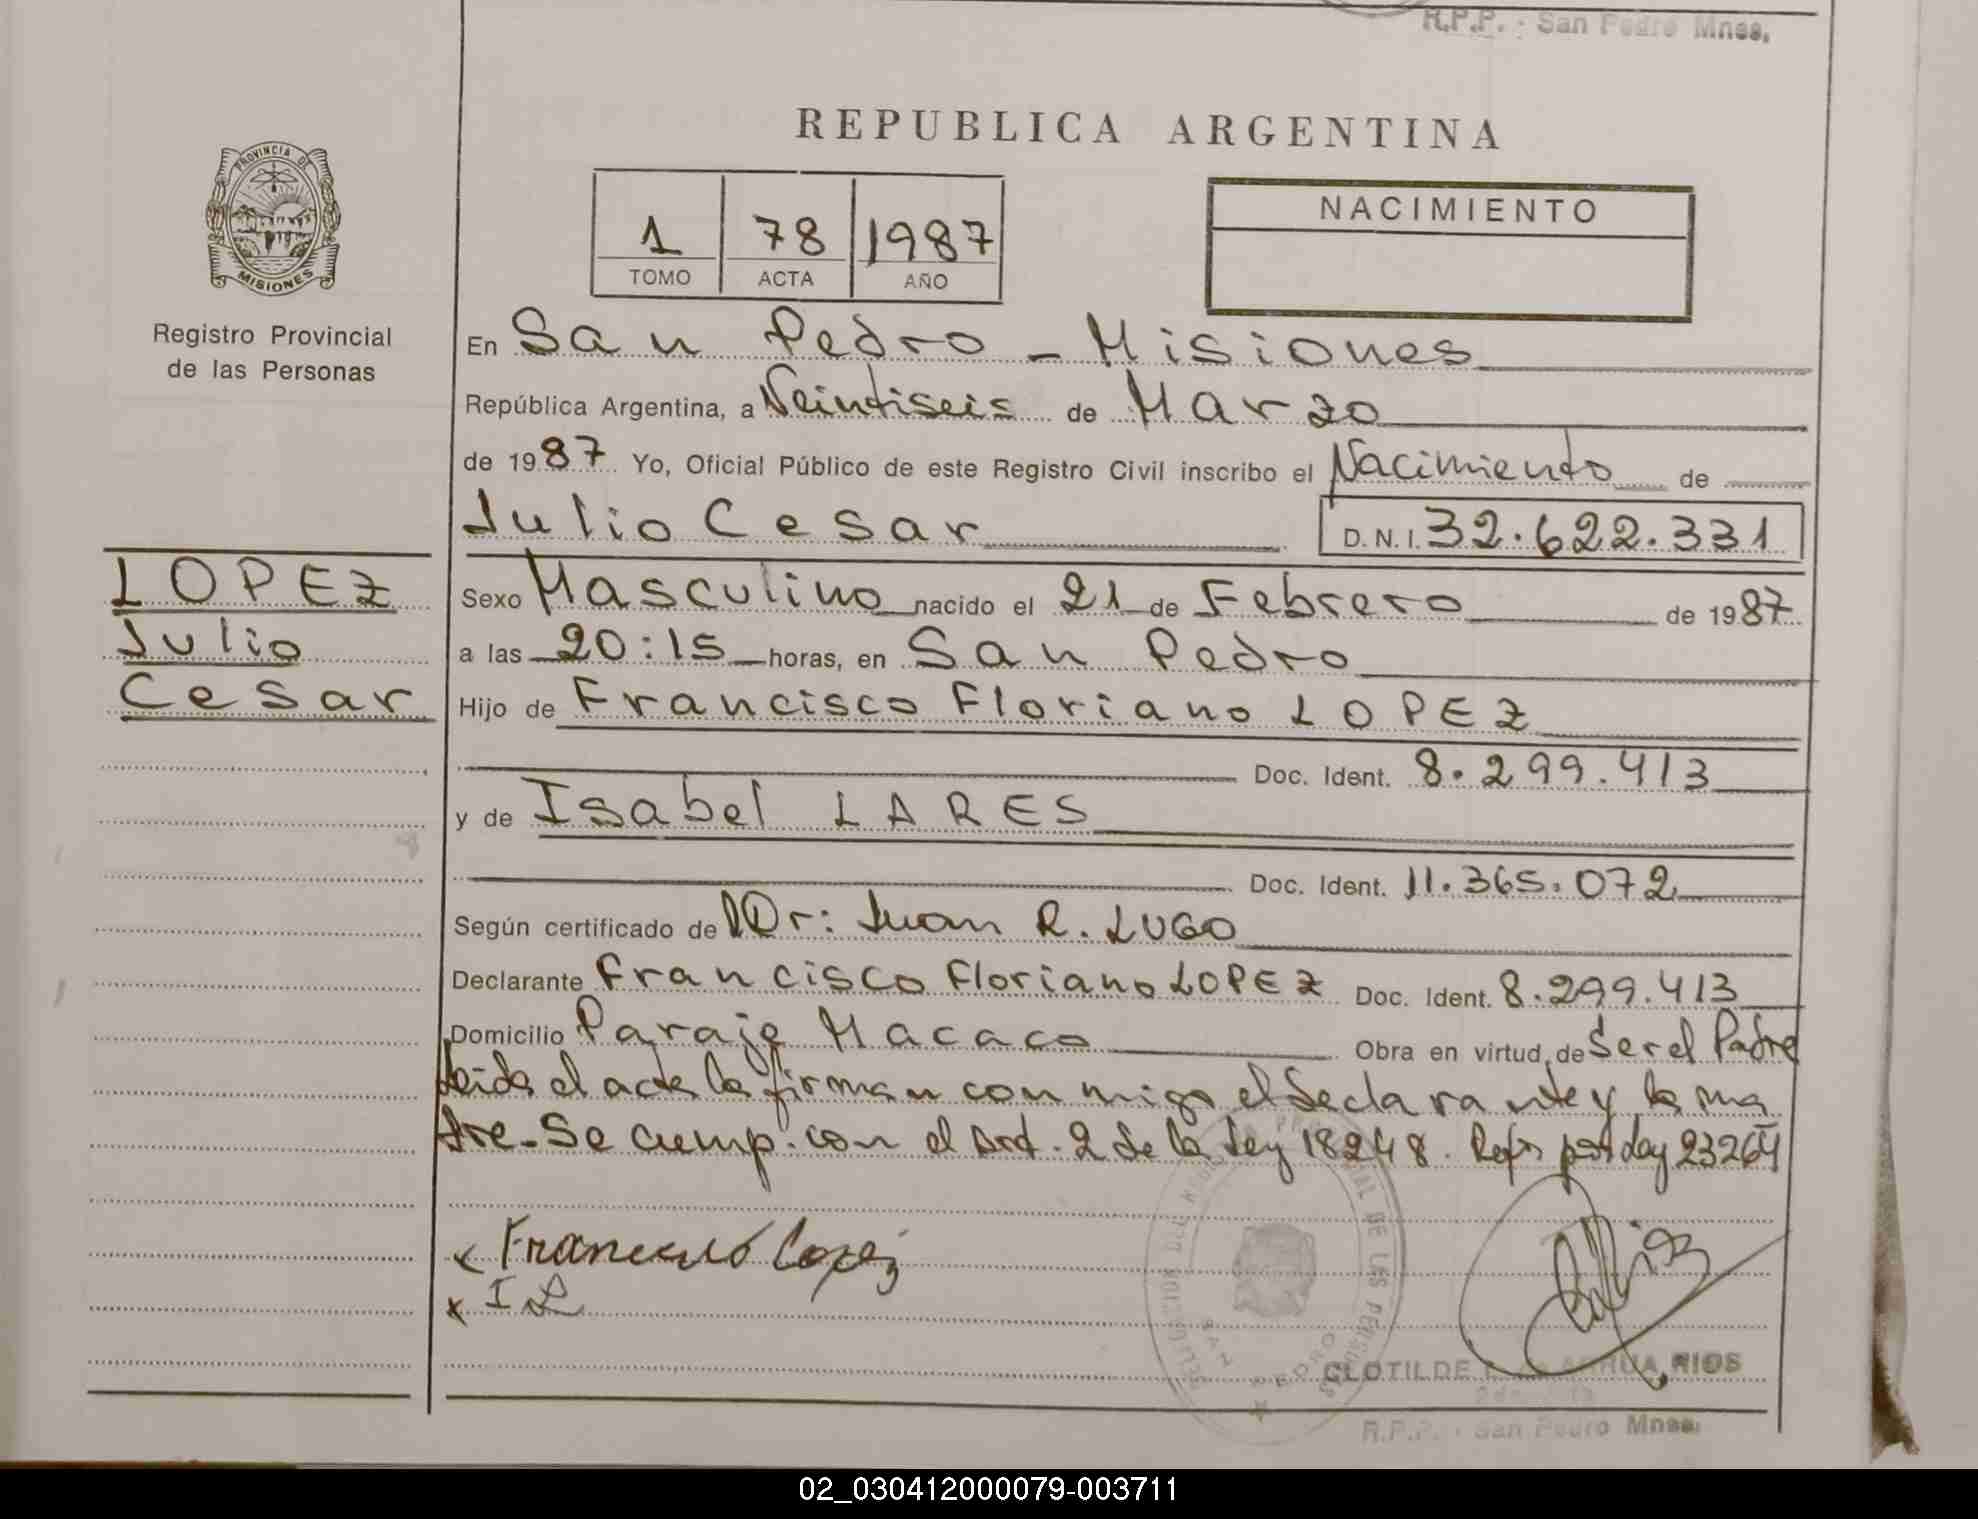 R.P.P. - San Pedro Mnes.
REPUBLICA ARGENTINA
PROVINCIA DE
MISIONES
Registro Provincial
de las Personas
1 78 1987
TOMO ACTA AÑO
NACIMIENTO
En San Pedro - Misiones
República Argentina, a Veintiseis de Marzo
de 1987 Yo, Oficial Público de este Registro Civil inscribo el Nacimiento de
Julio Cesar D.N.I. 32.622.331
LOPEZ
Julio
Cesar
Sexo Masculino nacido el 21 de Febrero de 1987
a las 20:15 horas, en San Pedro
Hijo de Francisco Floriano LOPEZ
Doc. Ident. 8.299.413
y de Isabel LARES
Doc. Ident. 11.365.072
Según certificado de Dr: Juan R. LUGO
Declarante Francisco Floriano LOPEZ Doc. Ident. 8.299.413
Domicilio Paraje Macaco Obra en virtud de Ser el Padre
leida el acta la firman con migo el declarante y la ma
dre - Se cump. con el Art. 2 de la Ley 18248. Refr por Ley 23264
x Francisco Lopez
x I L
SAN PEDRO
CLOTILDE RIOS
R.P.P. - San Pedro Mnes.
02_030412000079-003711